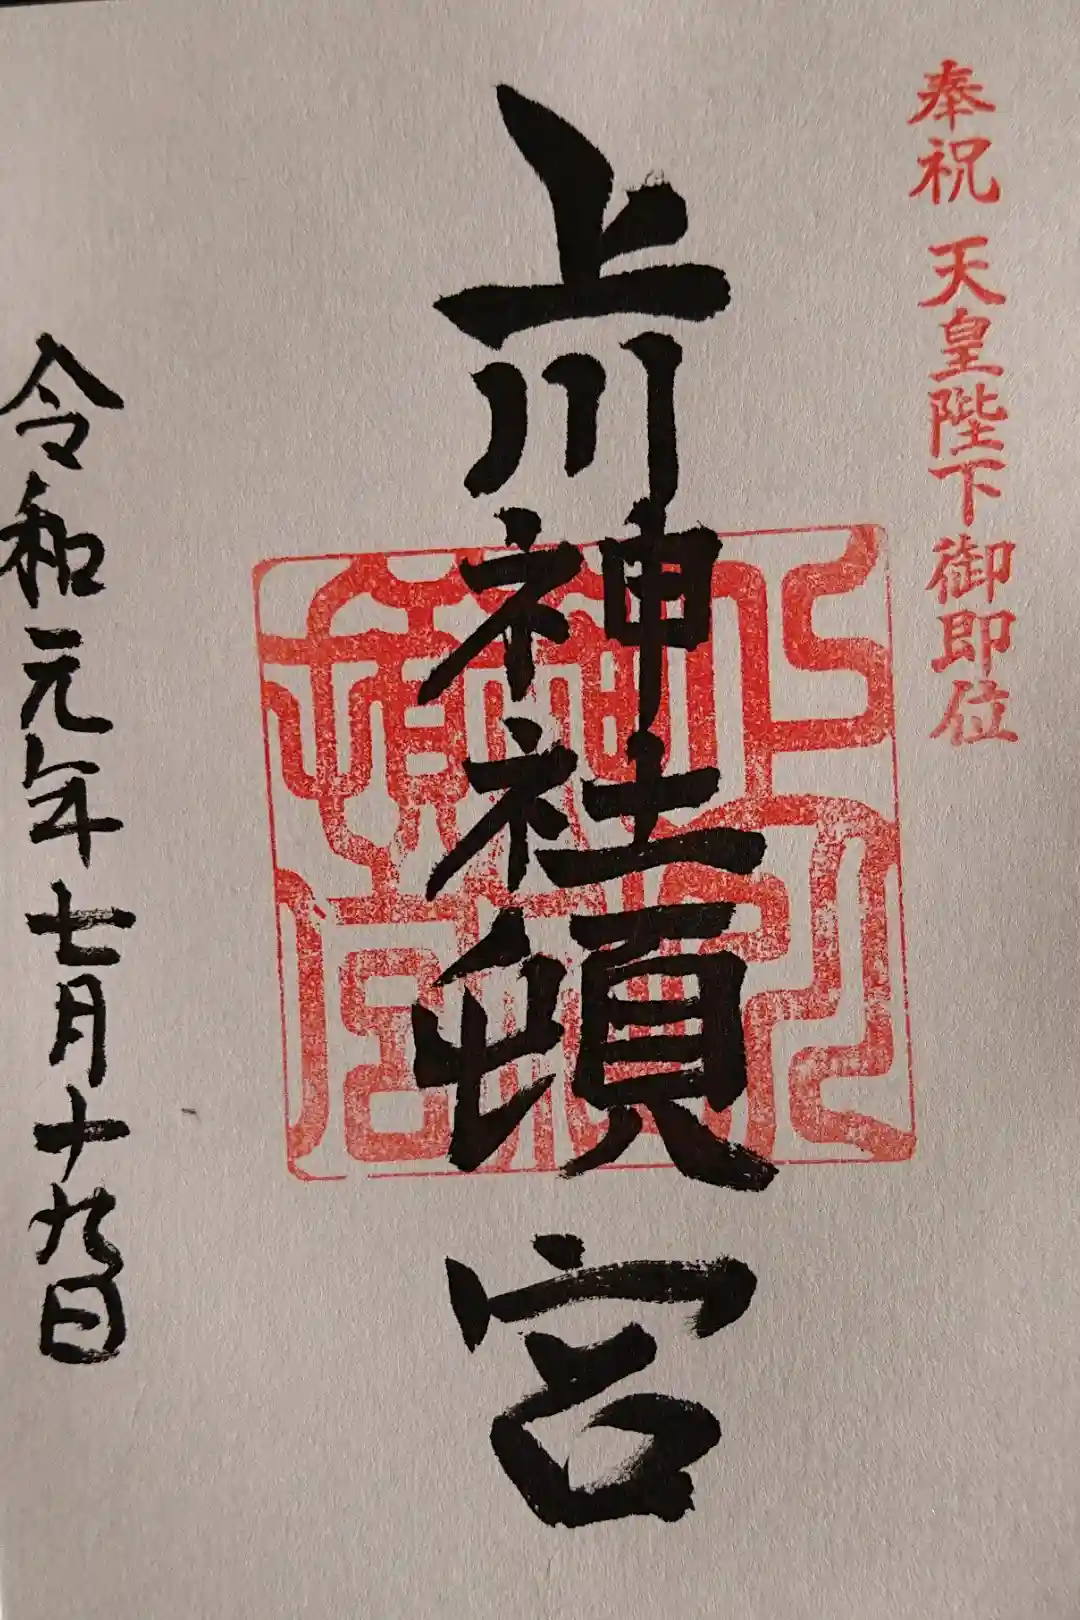 奉祝 天皇陛下御即位
上川神社頓宮
上川神社頓宮
令和元年七月十九日